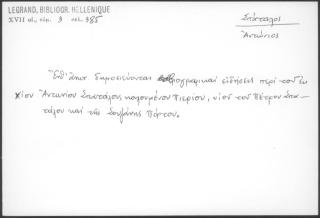 LEGRAND, BIBLIOGR. HELLENIQUE
XVII αἰ, τόμ. 3 σελ. 385
Σπάταλος
Ἀντώνιος
δημοσιεύονται βιογραφικαὶ εἰδήσεις περὶ τοῦ
Ἀντωνίου Σπατάλου καλουμένου Πιερίου, υἱοῦ τοῦ Πέτρου Σπα-
τάλου καὶ τῆς Σουζάνης Πόρτου.